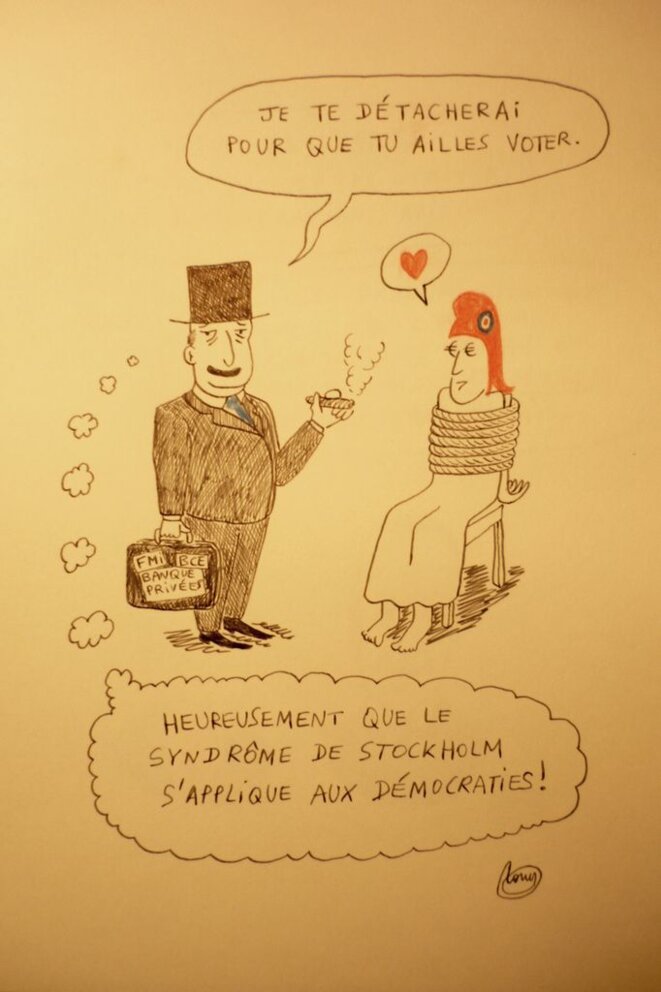 JE TE DÉTACHERAI
POUR QUE TU AILLES VOTER.
€ €
FMI BCE
BANQUE
PRIVÉES
HEUREUSEMENT QUE LE
SYNDRÔME DE STOCKHOLM
S'APPLIQUE AUX DÉMOCRATIES!